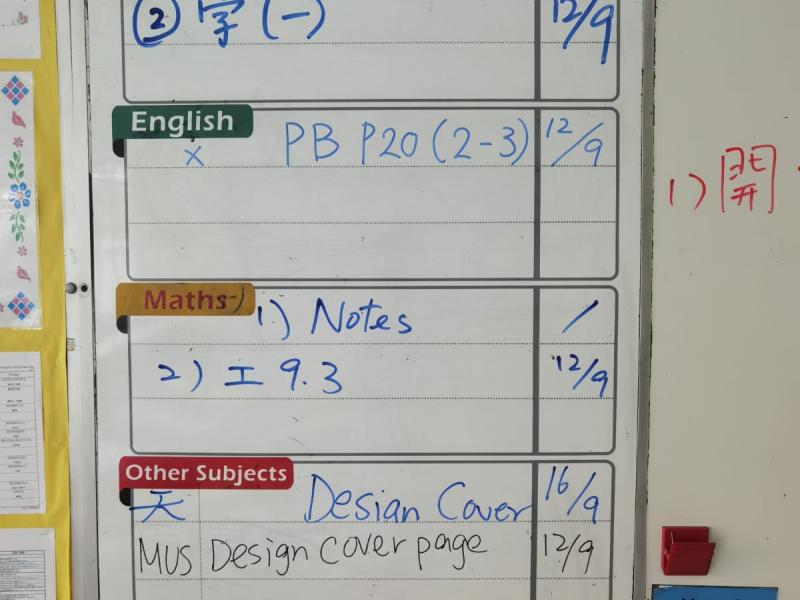 ② 字(一) 12/9
English
x PB P20 (2-3) 12/9
Maths
1) Notes /
2) 工 9.3 12/9
Other Subjects
天 Desian Cover 16/9
MUS Design cover page 12/9
1) 開